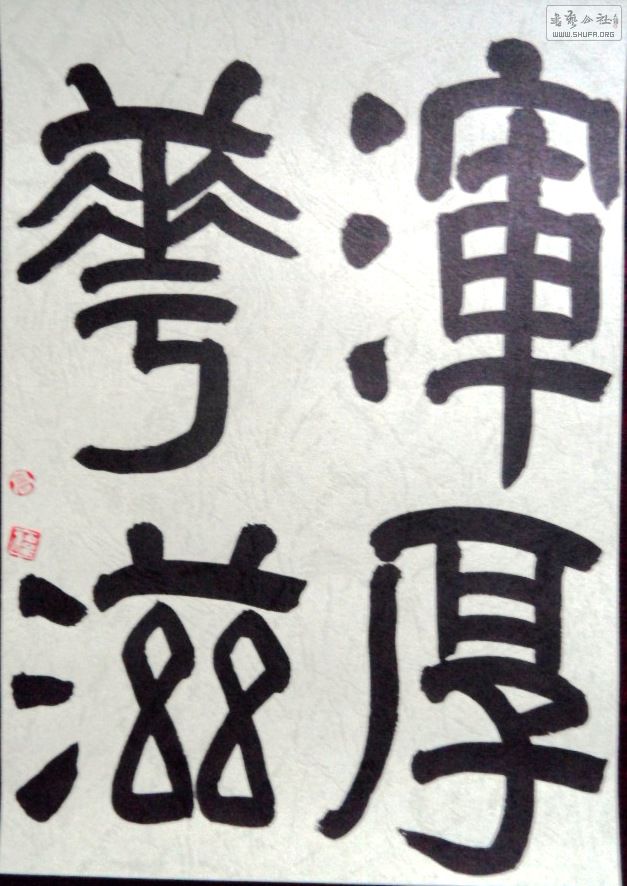 渾厚
華滋
書藝公社
WWW.SHUFA.ORG